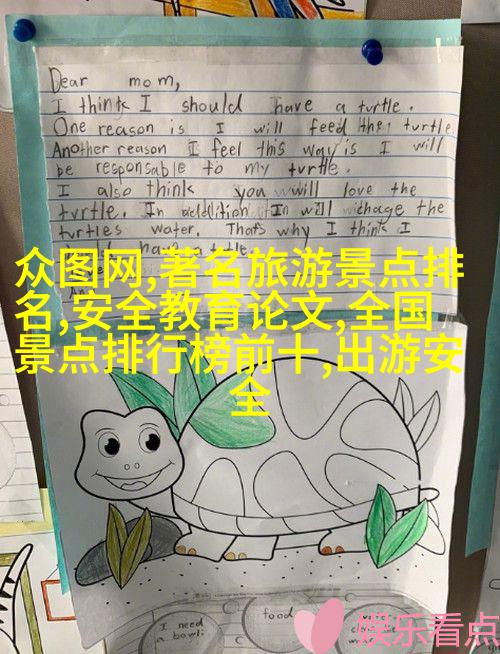 Dear mom,
I think I should have a turtle.
One reason is I will feed the turtle.
Another reason I feel this way is I will
be responsable to my turtle.
I also think you will love the
turtle. In addition In will chage the
turtles water. Thats why I think I
众图网,著名旅游景点排
名,安全教育论文,全国
景点排行榜前十,出游安
全
I need
a bowl
food
娱乐看点